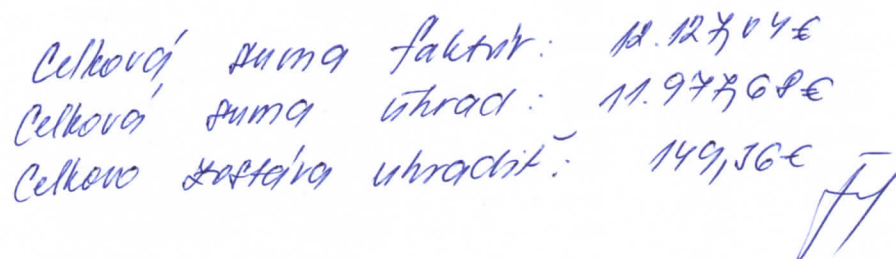 Celková suma faktúr: 12.127,04€
Celková suma úhrad: 11.977,68€
Celkovo zostáva uhradiť: 149,36€